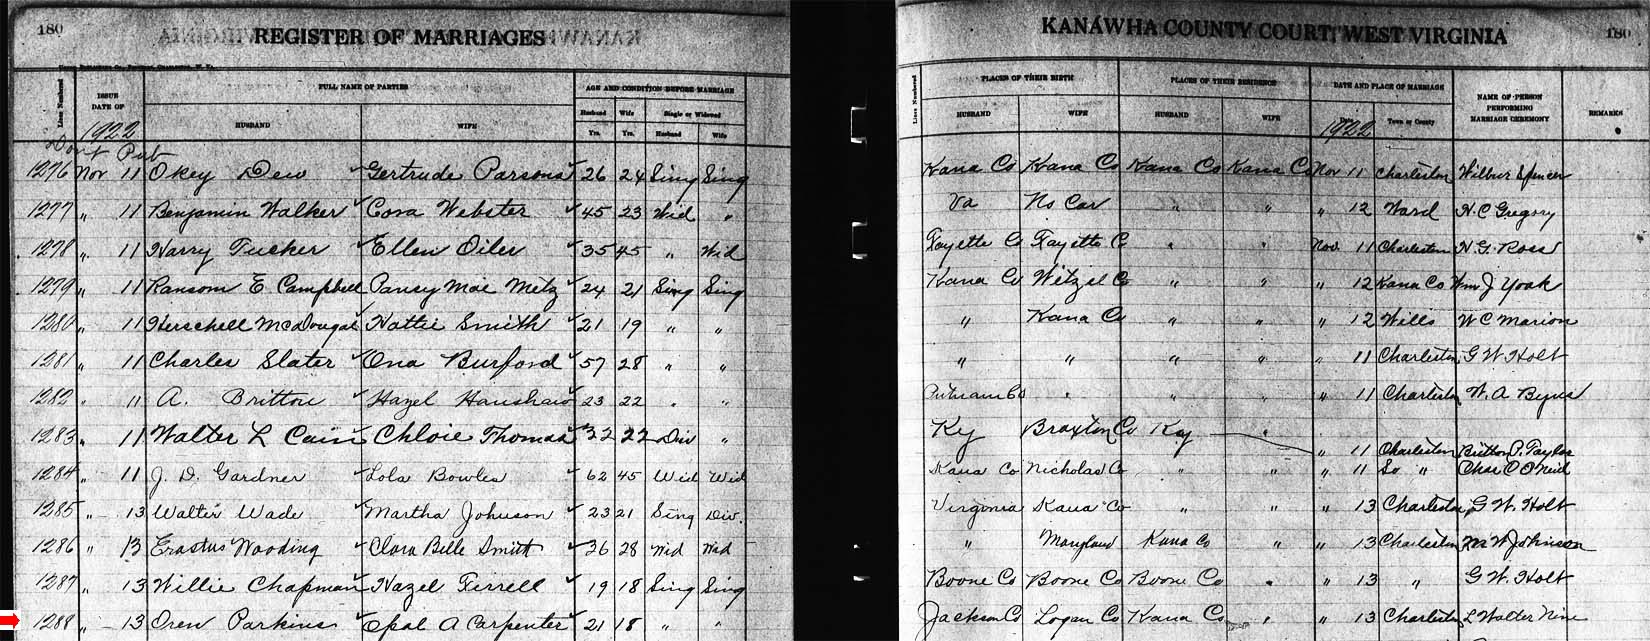 180 REGISTER OF MARRIAGES
KANAWHA COUNTY COURT, WEST VIRGINIA 180
Line Numbered
ISSUE DATE OF
FULL NAME OF PARTIES
AGE AND CONDITION BEFORE MARRIAGE
HUSBAND WIFE
Husband Wife Single or Widowed
Yrs. Yrs. Husband Wife
1922
Don't Pub
1276 Nov 11 Okey Dew Gertrude Parsons 26 24 Sing Sing
1277 " 11 Benjamin Walker Cora Webster 45 23 Wid "
1278 " 11 Harry Tucker Ellen Oiler 35 45 " Wid
1279 " 11 Ransom E Campbell Pansy Mae Metz 24 21 Sing Sing
1280 " 11 Herschell McDougal Hattie Smith 21 19 " "
1281 " 11 Charles Slater Ona Burford 57 28 " "
1282 " 11 A. Britton Hazel Hanshaw 23 22 " "
1283 " 11 Walter L Cain Chloie Thomas 32 22 Div "
1284 " 11 J. D. Gardner Lola Bowles 62 45 Wid Wid
1285 " 13 Walter Wade Martha Johnson 23 21 Sing Div.
1286 " 13 Erastus Wooding Clara Belle Smith 36 28 Wid Wid
1287 " 13 Willie Chapman Hazel Ferrell 19 18 Sing Sing
1288 " 13 Oren Parkins Opal A Carpenter 21 18 " "
Line Numbered
PLACES OF THEIR BIRTH
PLACES OF THEIR RESIDENCE
DATE AND PLACE OF MARRIAGE
NAME OF PERSON PERFORMING MARRIAGE CEREMONY
REMARKS
HUSBAND WIFE HUSBAND WIFE
1922 Town or County
Kana Co Kana Co Kana Co Kana Co Nov 11 Charleston Wilbur Spencer
Va No Car " " " 12 Ward H. C Gregory
Fayette Co Fayette C " " Nov. 11 Charleston H. G. Ross
Kana Co Wetzel Co " " " 12 Kana Co Wm J York
" Kana Co " " " 12 Wills W C Marion
" " " " " 11 Charleston G W Holt
Putnam Co " " " " 11 Charleston W. A. Byus
Ky Braxton Co Ky " " 11 Charleston Britton P. Taylor
Kana Co Nicholas Co " " " 11 So " Chas C O'Neid
Virginia Kana Co " " " 13 Charleston G W. Holt
" Maryland Kana Co " " 13 Charleston M W Johnson
Boone Co Boone Co Boone Co " " 13 " G W. Holt
Jackson Co Logan Co Kana Co " " 13 Charleston L Walter Nine